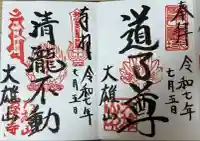 奉拝
道了尊
令和七年
七月五日
大雄山
奉拝
清瀧不動
令和七年
七月五日
大雄山